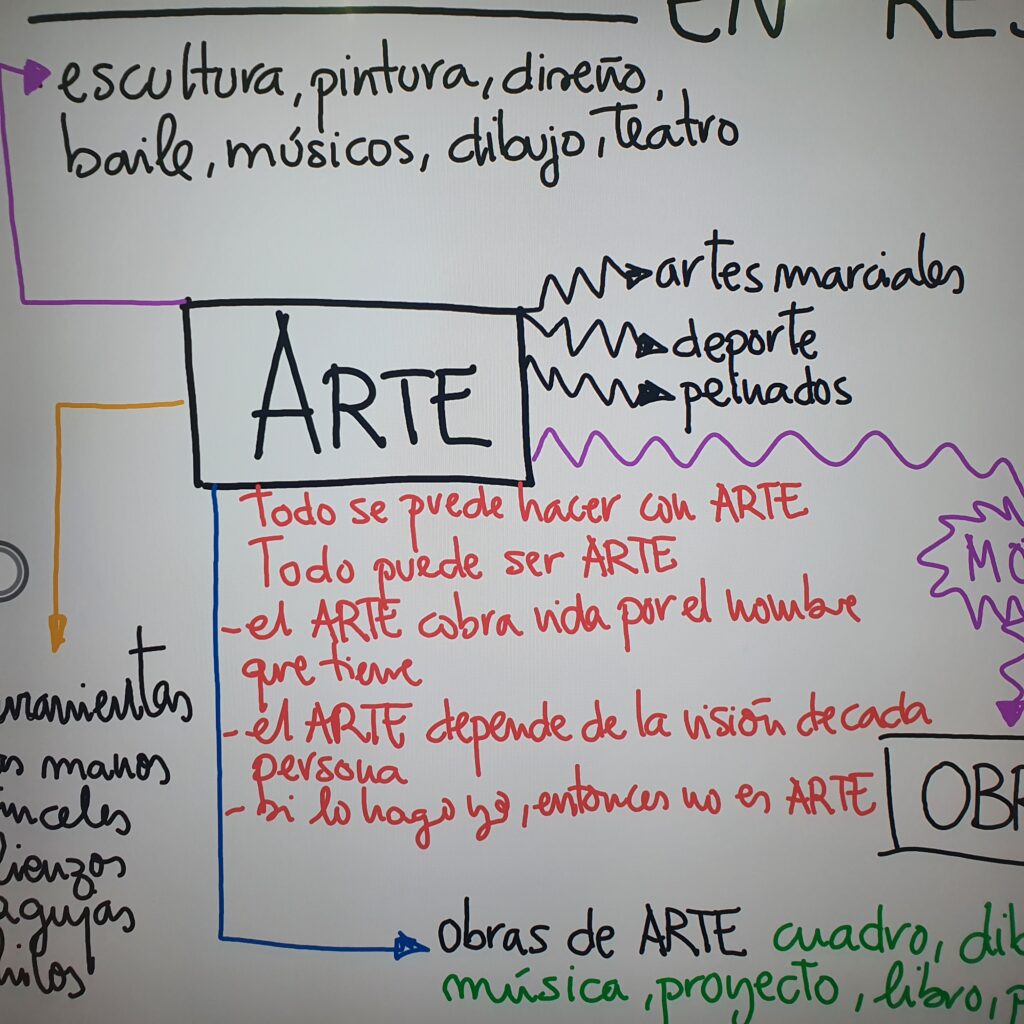 EN RES
escultura, pintura, diseño,
baile, músicos, dibujo, Teatro
artes marciales
deporte
peinados
ARTE
Todo se puede hacer con ARTE
Todo puede ser ARTE
- el ARTE cobra vida por el nombre
que tiene
- el ARTE depende de la visión de cada
persona
- si lo hago yo, entonces no es ARTE
MO
OBR
ramientas
as manos
inceles
lienzos
agujas
hilos
obras de ARTE cuadro, dib
música, proyecto, libro, p